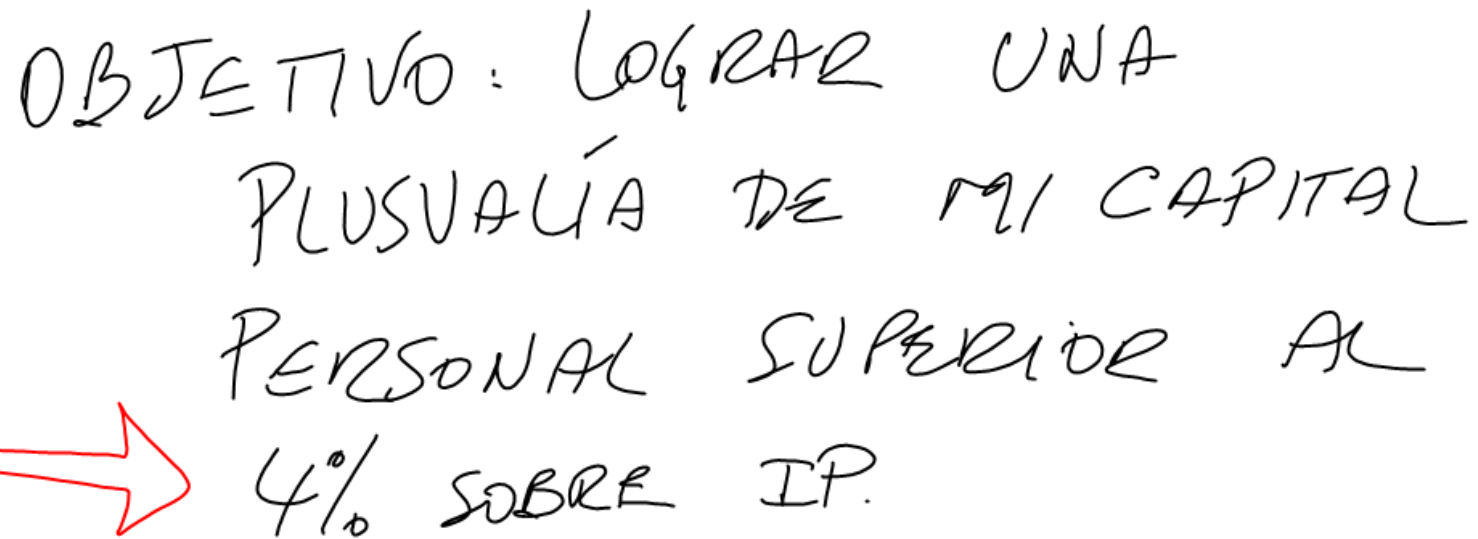 OBJETIVO: LOGRAR UNA
PLUSVALÍA DE MI CAPITAL
PERSONAL SUPERIOR AL
4% SOBRE IP.